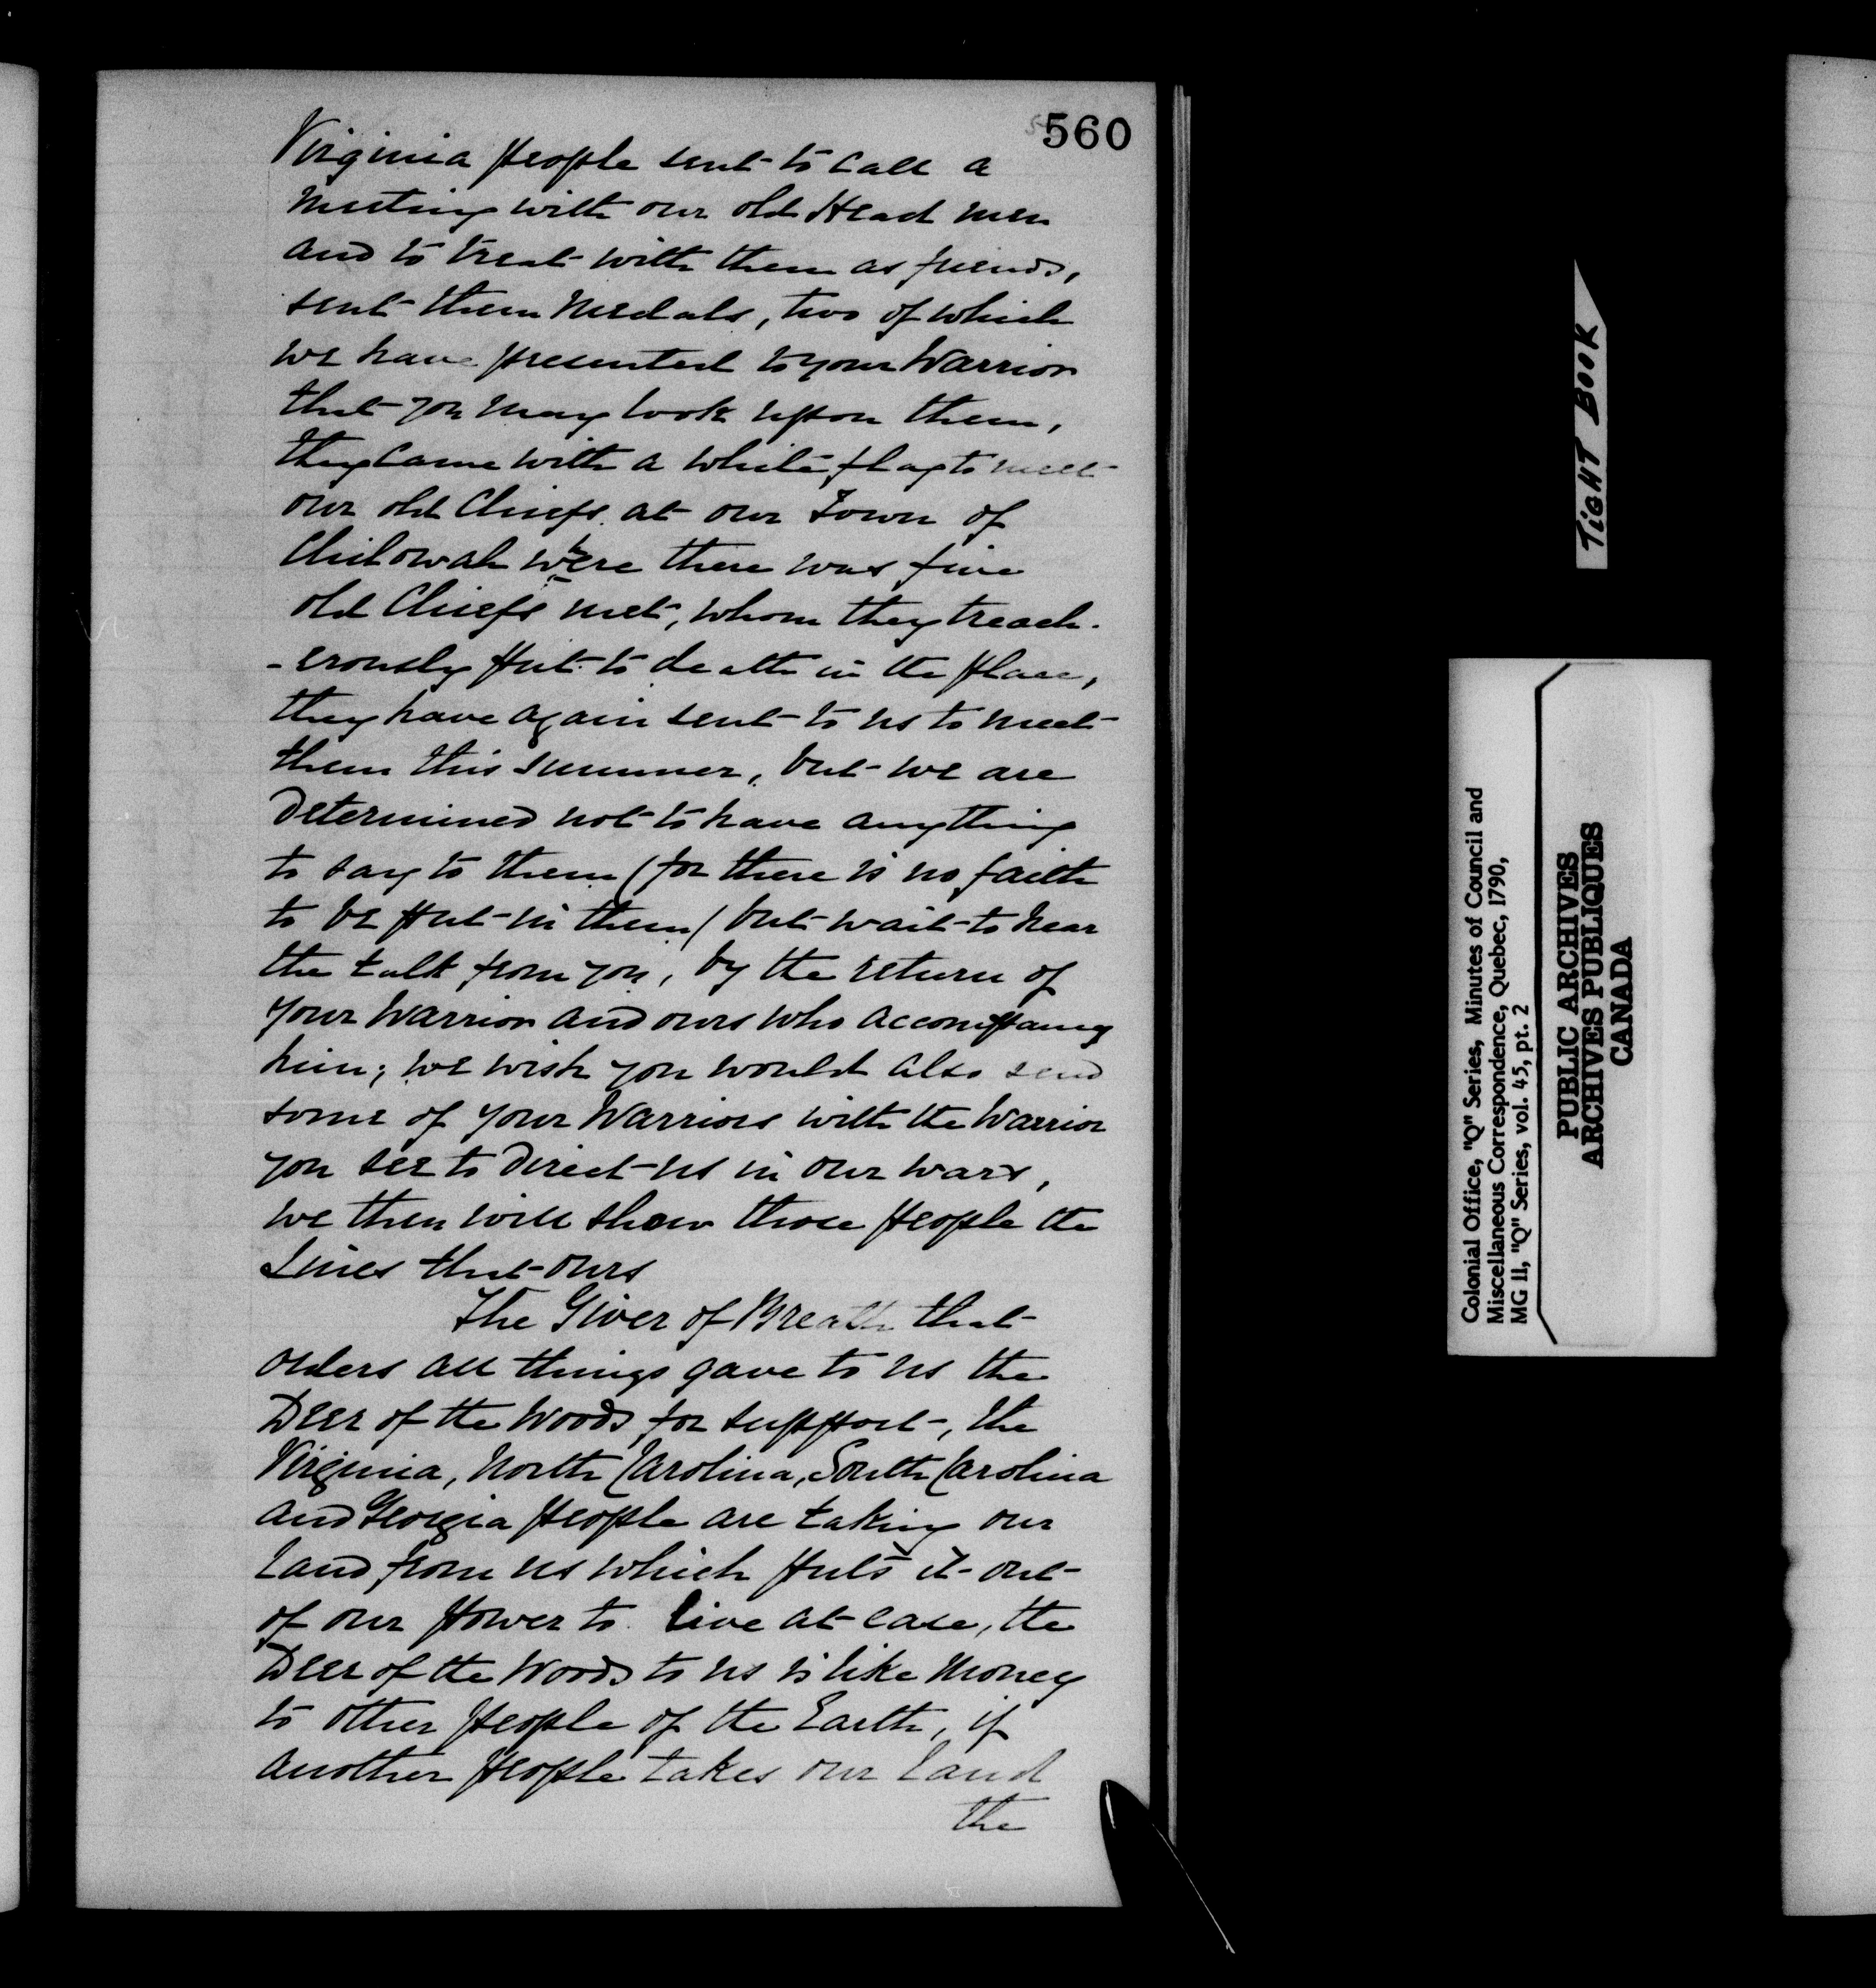 560
Virginia people sent to call a
meeting with our old Head men
and to treat with them as friends,
sent them Medals, two of which
we have presented to your Warrior
that you may look upon them,
they came with a white flag to meet
our old Chiefs at our Town of
Chilowah where there was five
old Chiefs met, whom they treach-
-erously put to death in the place,
they have again sent to us to meet
them this summer, but we are
determined not to have anything
to say to them (for there is no faith
to be put in them) but wait to hear
the talk from you, by the return of
your Warrior and ours who accompany
him; we wish you would also send
some of your Warriors with the Warrior
you see to direct us in our wars,
we then will show those people the
Lines that ours
The Giver of Breath that
orders all things gave to us the
Deer of the Woods for support, the
Virginia, North Carolina, South Carolina
and Georgia people are taking our
land from us which puts it out
of our power to live at ease, the
Deer of the Woods to us is like money
to other people of the Earth, if
another people takes our land
the
TIGHT BOOK
Colonial Office, "Q" Series, Minutes of Council and
Miscellaneous Correspondence, Quebec, 1790,
MG 11, "Q" Series, vol. 45, pt. 2
PUBLIC ARCHIVES
ARCHIVES PUBLIQUES
CANADA